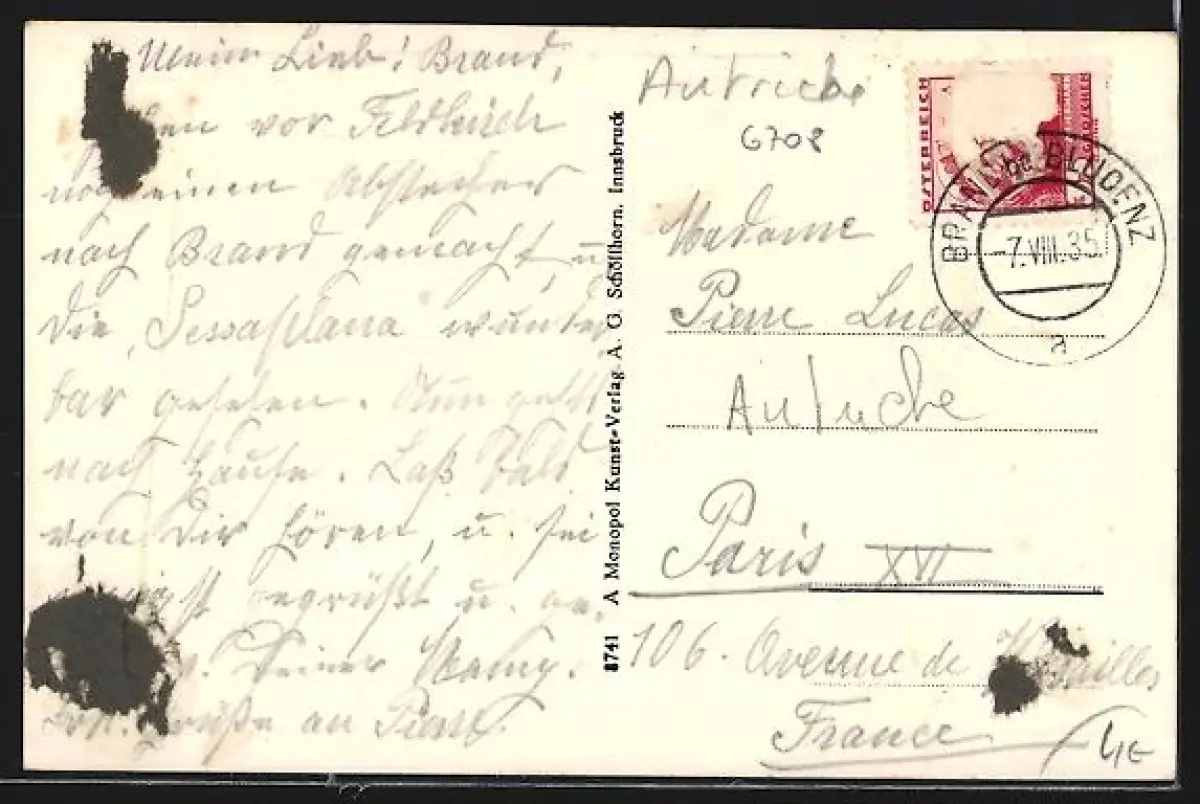 Mein Lieb! Brand,
vor Feldkirch
noch einen Abstecher
nach Brand gemacht, u.
die „Sessaplana" wunder
bar gesehen. Nun geht's
nach Hause. Laß bald
von Dir hören, u. sei
innigst gegrüßt u. ge.
Deiner Mamy.
Grüße an Pierre.
8741 A Monopol Kunst-Verlag A. G. Schöllhorn, Innsbruck
Autriche
6708
ÖSTERREICH
BRAND be BLUDENZ
-7.VIII.35
a
Madame
Pierre Lucas
Autriche
Paris XVI
106. Avenue de Versailles
France
4€